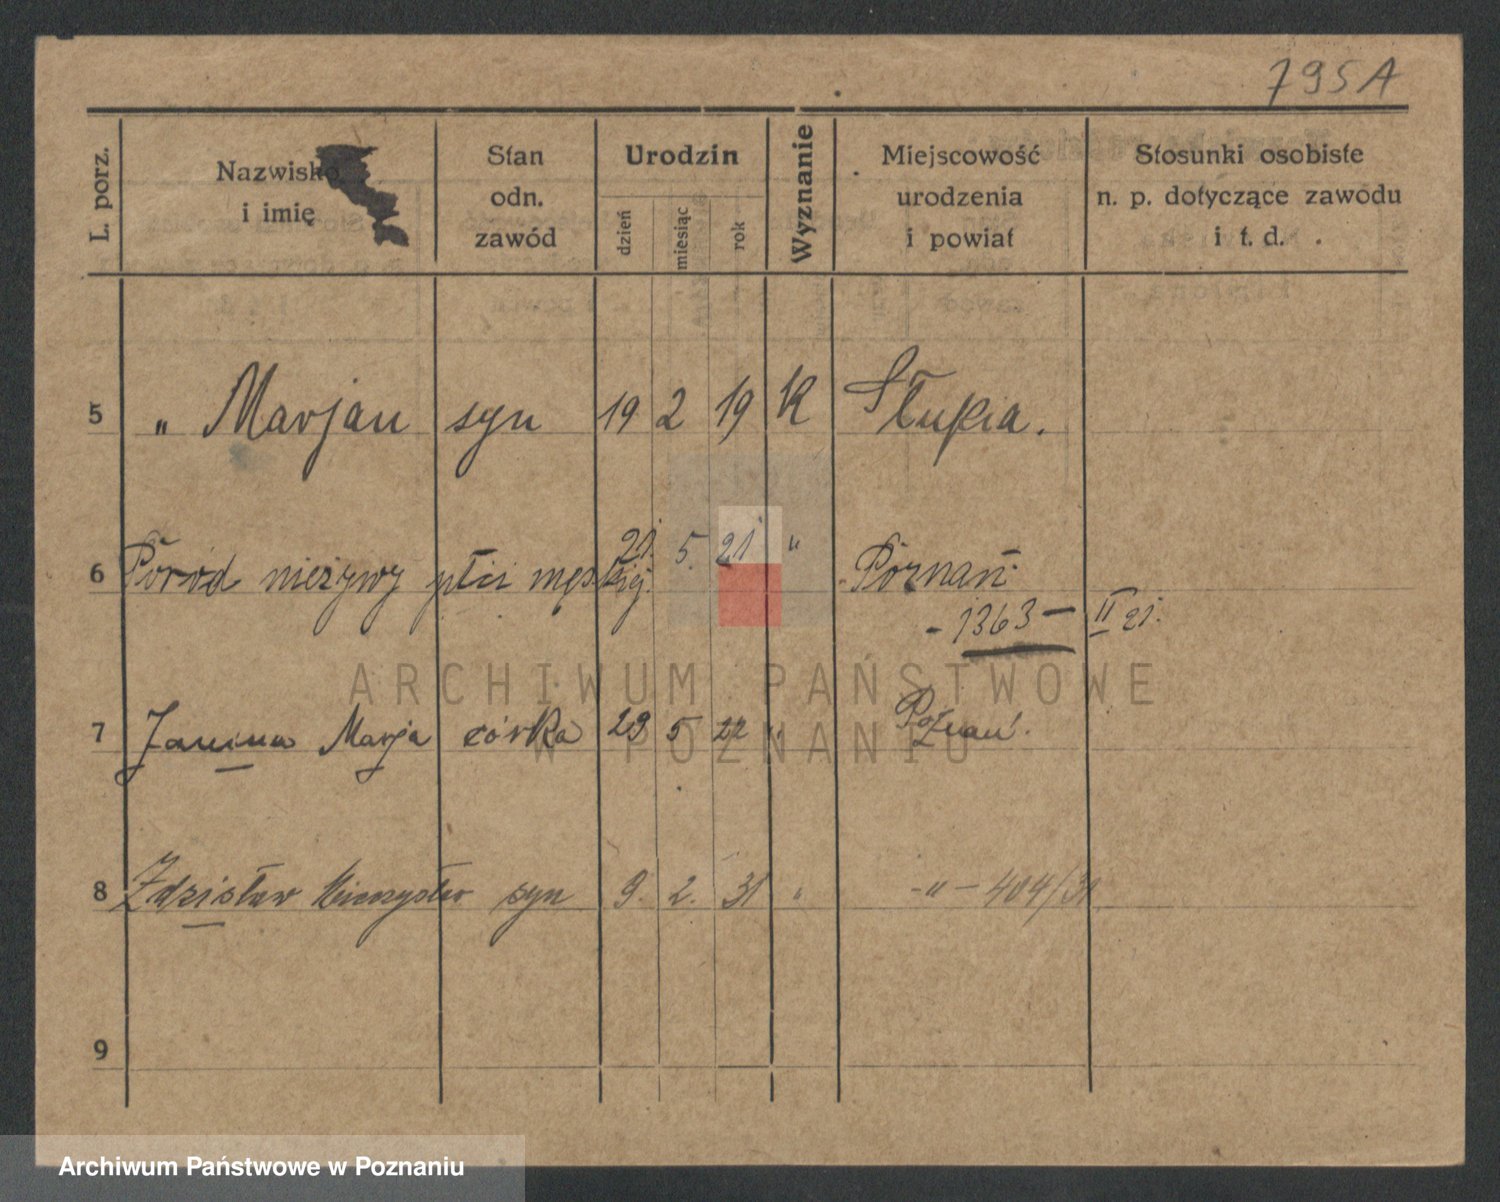 795A
L. porz.
Nazwisko
i imię
Stan
odn.
zawód
Urodzin
dzień
miesiąc
rok
Wyznanie
Miejscowość
urodzenia
i powiat
Stosunki osobiste
n. p. dotyczące zawodu
i t. d.
5 " Marjan syn 19 2 19 K Słupia.
6 Poród nieżywy płci męskiej. 21. 5. 21 " Poznań
- 1363 - II 21.
7 Janina Marja córka 29 5 22 " Poznań.
8 Zdzisław Mieczysław syn 9. 2. 31 " -"- 404/31
9
ARCHIWUM PAŃSTWOWE
W POZNANIU
Archiwum Państwowe w Poznaniu